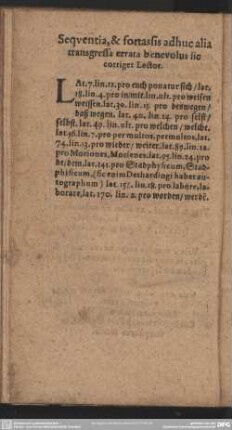 Seqventia, & fortassis adhuc alia
transgressa errata benevolus sic
corriget Lector.
LAt. 7. lin. 12. pro euch ponatur sich / lat.
18. lin. 4. pro in mit. lin. ult. pro weisen
weissen. lat. 30. lin. 13. pro deswegen /
daß wegen. lat. 40. lin. 14. pro selst /
selbst. lat. 49. lin. ult. pro welchen / welche.
lat. 56. lin. 7. pro per multos, permultos, lat.
74. lin. 13. pro wieder / weiter. lat. 89. lin. 12.
pro Motiones, Motienes. lat. 95. lin. 24. pro
de, dem. lat. 141. pro Stadphysicum, Stad-
physicum, (sic enim Dethardingi haber au-
tographum) lat. 157. lin. 18. pro labore, la-
borate, lat. 170. lin. 2. pro worden / werdē.